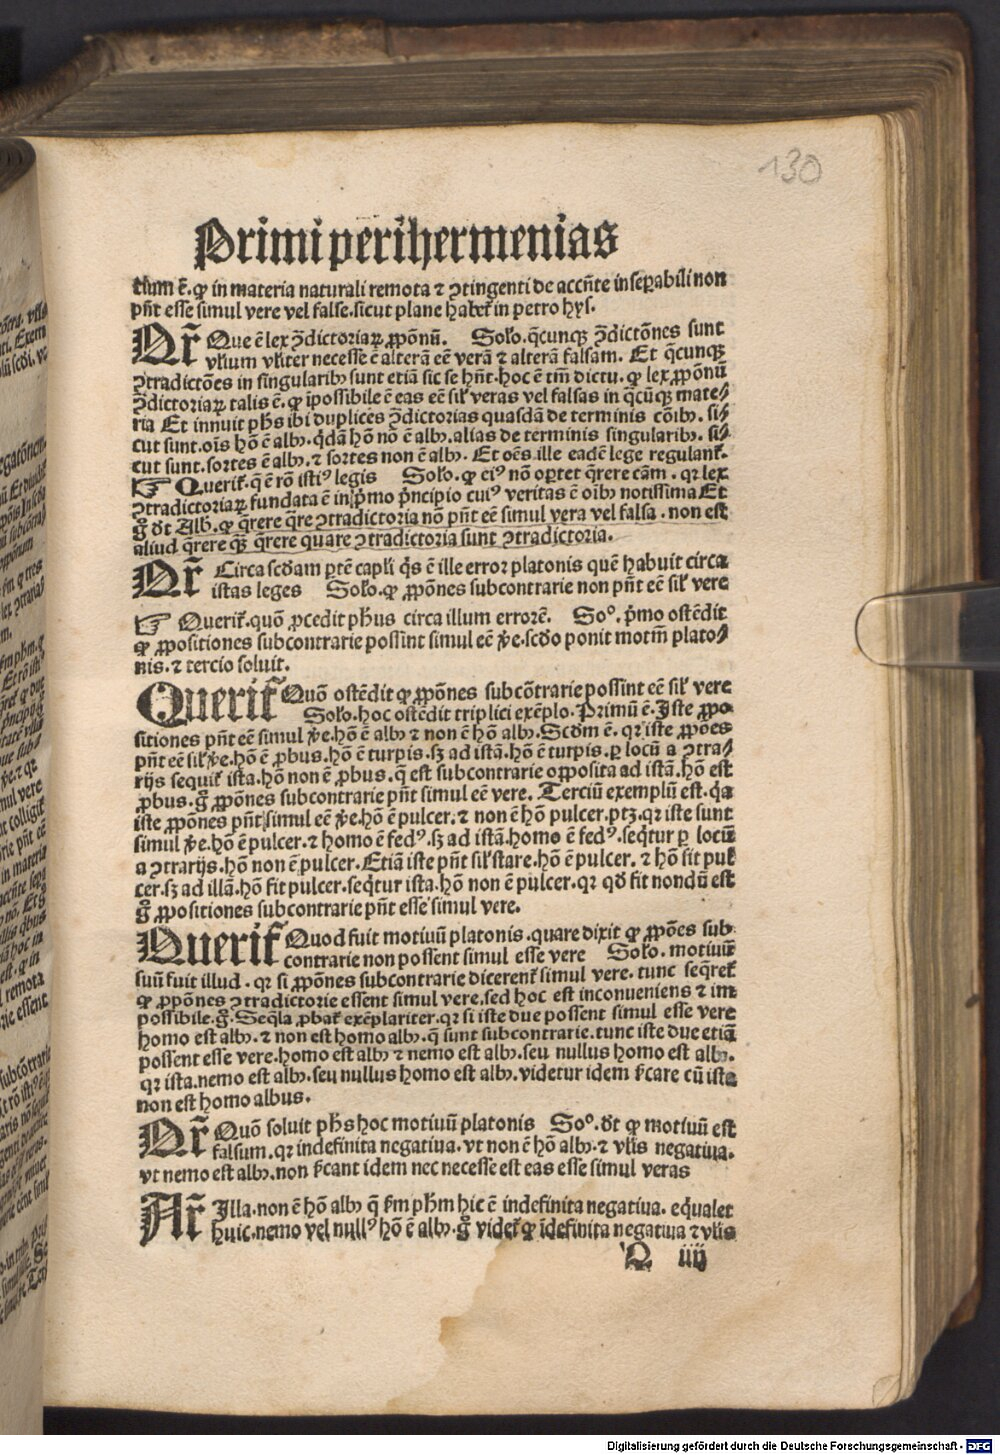 130
Primi perihermenias
tium ē. ꝙ in materia naturali remota ⁊ ↄtingenti de accn̄te inseꝑabili non
pn̄t esse simul vere vel false. sicut plane habet᷑ in petro hys.
Qr̄ Que ē lex ↄ̄dictoriaꝝ ꝓpōnū. Solo. qcūnqꝫ ↄ̄dictōnes sunt
vlium vliter necesse ē alterā eē verā ⁊ alterā falsam. Et qcūnqꝫ
ↄtradictōes in singularibꝰ sunt etiā sic se hn̄t. hoc ē tm̄ dictu. ꝙ lex ꝓpōnū
ↄ̄dictoriaꝝ talis ē. ꝙ īpossibile ē eas eē sil' veras vel falsas in qcūqꝫ mate⸗
ria Et innuit phs ibi duplices ↄ̄dictorias quasdā de terminis cōibꝰ. si⸗
cut sunt. oīs hō ē albꝰ. qdā hō nō ē albꝰ. alias de terminis singularibꝰ. si⸗
cut sunt. sortes ē albꝰ. ⁊ sortes non ē albꝰ. Et oēs ille eadē lege regulant᷑.
☞ Querit᷑. q̄ ē rō istiꝰ legis Solo. ꝙ eiꝰ nō oꝑtet q̄rere cām. qꝛ lex
ↄtradictoriaꝝ fundata ē in pͥmo pͥncipio cuiꝰ veritas ē oībꝰ notissima Et
gͦ dt Alb. ꝙ q̄rere q̄re ↄtradictoria nō pn̄t eē simul vera vel falsa. non est
aliud q̄rere qꝫ q̄rere quare ↄtradictoria sunt ↄtradictoria.
Qr̄ Circa scdam ꝑtē capli qͥs ē ille error platonis quē habuit circa
istas leges Solo. ꝙ ꝓpōnes subcontrarie non pn̄t eē sil' vere
☞ Querit᷑. quō ꝓcedit phus circa illum errorē. Soͦ. pͥmo ostēdit
ꝙ ꝓpositiones subcontrarie possint simul eē v̄e. scdo ponit motm̄ plato⸗
nis. ⁊ tercio soluit.
Querit᷑ Quō ostēdit ꝙ ꝓpōnes subcōtrarie possint eē sil' vere
Solo. hoc ostēdit triplici exēplo. Primū ē. Iste ꝓpo⸗
sitiones pn̄t eē simul v̄e. hō ē albꝰ ⁊ non ē hō albꝰ. Scdm ē. qꝛ iste ꝓpōes
pn̄t eē sil' v̄e. hō ē ꝓbus. hō ē turpis. sꝫ ad istā. hō ē turpis. ꝑ locū a ↄtra⸗
rijs sequit᷑ ista. hō non ē ꝓbus. q̄ est subcontrarie opposita ad istā. hō est
ꝓbus. gͦ ꝓpōnes subcontrarie pn̄t simul eē vere. Terciū exemplū est. qꝛ
iste ꝓpōnes pn̄t simul eē v̄e. hō ē pulcer. ⁊ non ē hō pulcer. ptꝫ. qꝛ iste sunt
simul v̄e. hō ē pulcer. ⁊ homo ē fedꝰ. sꝫ ad istā. homo ē fedꝰ. seqͥtur ꝑ locū
a ↄtrarijs. hō non ē pulcer. Etiā iste pn̄t sil' stare. hō ē pulcer. ⁊ hō fit pul⸗
cer. sꝫ ad illā. hō fit pulcer. seqͥtur ista. hō non ē pulcer. qꝛ qd fit nondū est
gͦ ꝓpositiones subcontrarie pn̄t esse simul vere.
Querit᷑ Quod fuit motiuū platonis. quare dixit ꝙ ꝓpōes sub⸗
contrarie non possent simul esse vere Solo. motiuū
suū fuit illud. qꝛ si ꝓpōnes subcontrarie dicerent᷑ simul vere. tunc seqret᷑
ꝙ ꝓpōnes ↄtradictorie essent simul vere. sed hoc est inconueniens ⁊ im
possibile. gͦ. Seqͣla ꝓbat᷑ exēplariter. qꝛ si iste due possent simul esse vere
homo est albꝰ. ⁊ non est homo albꝰ. q̄ sunt subcontrarie. tunc iste due etiā
possent esse vere. homo est albꝰ ⁊ nemo est albꝰ. seu nullus homo est albꝰ.
qꝛ ista. nemo est albꝰ. seu nullus homo est albꝰ. videtur idem sͥcare cū ista
non est homo albus.
Qr̄ Quō soluit phs hoc motiuū platonis Soͦ. dt ꝙ motiuū est
falsum. qꝛ indefinita negatiua. vt non ē hō albꝰ. ⁊ vlis negatiua.
vt nemo est albꝰ. non sͥcant idem nec necesse est eas esse simul veras
Ar̄ Illa. non ē hō albꝰ q̄ fm phm hic ē indefinita negatiua. eqͣualet
huic. nemo vel nullꝰ hō ē albꝰ. gͦ videt᷑ ꝙ īdefinita negatiua ⁊ vlis
Q iiij
Digitalisierung gefördert durch die Deutsche Forschungsgemeinschaft - DFG